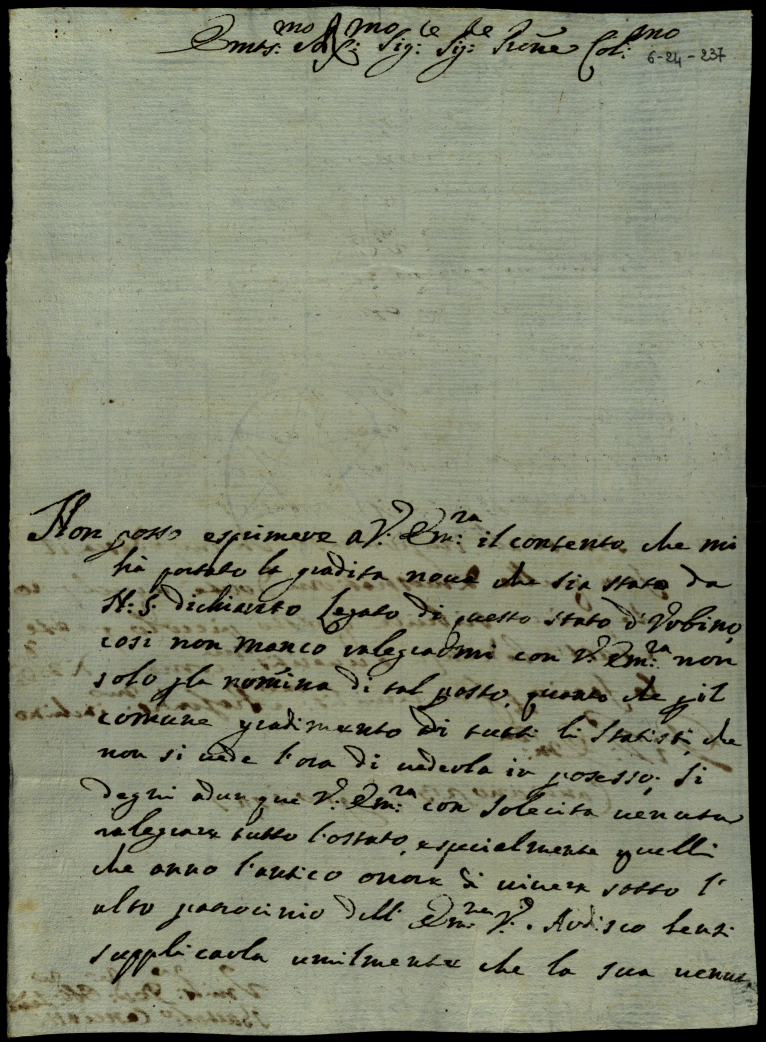 Em.mo Sig.re Sig.re Prone Col.mo
6-24-237
Non posso esprimere a V.a Em.za il contento che mi
hà portato la gradita noua che sia stato da
N: S: dichiarato Legato di questo stato d'Vrbino,
cosi non manco ralegrarmi con V.a Em.za non
solo p la nomina di tal posto, quanto che p il
comune gradimento di tutti li statisti, che
non si uede l'ora di uederla in posesso; si
degni adunque V.a Em.za con solecita uenuta
ralegrare tutto lo stato, especialmente quelli
che anno l'antico onore di uiuere sotto l'
alto patrocinio dell' Em.za V.a. Ardisco bensi
supplicarla umilmente che la sua uenuta